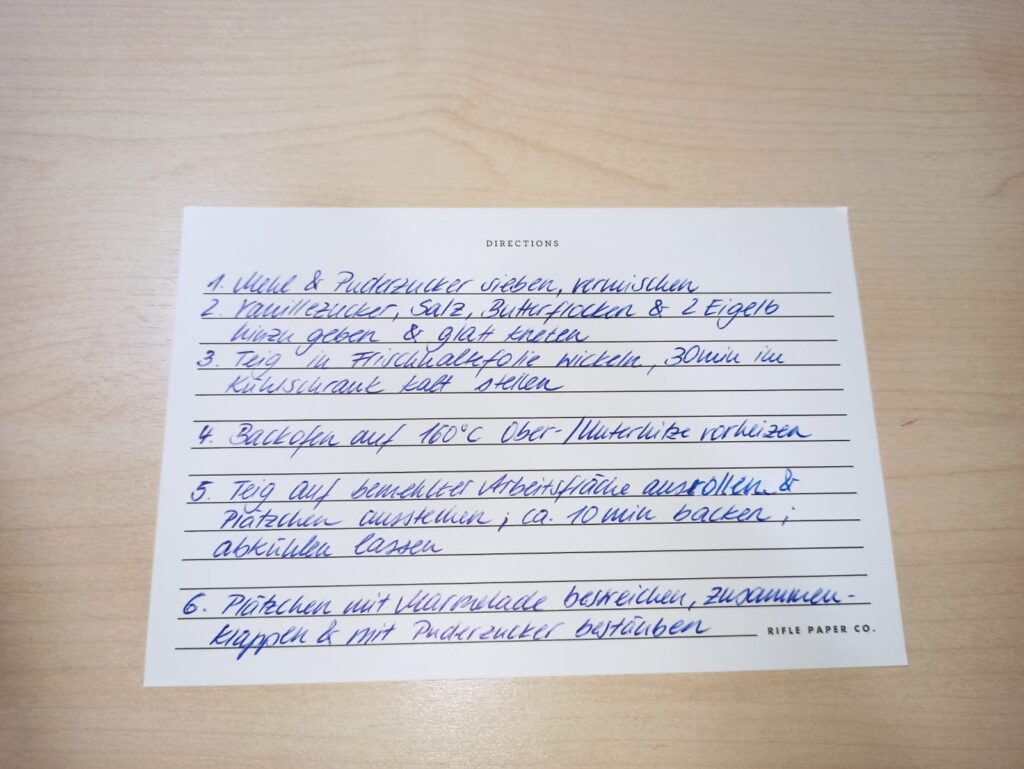 DIRECTIONS
1. Mehl & Puderzucker sieben, vermischen
2. Vanillezucker, Salz, Butterflocken & 2 Eigelb
hinzu geben & glatt kneten
3. Teig in Frischhaltefolie wickeln, 30min im
Kühlschrank kalt stellen
4. Backofen auf 160°C Ober-/Unterhitze vorheizen
5. Teig auf bemehlter Arbeitsfläche ausrollen &
Plätzchen ausstechen; ca. 10min backen;
abkühlen lassen
6. Plätzchen mit Marmelade bestreichen, zusammen-
klappen & mit Puderzucker bestäuben
RIFLE PAPER CO.